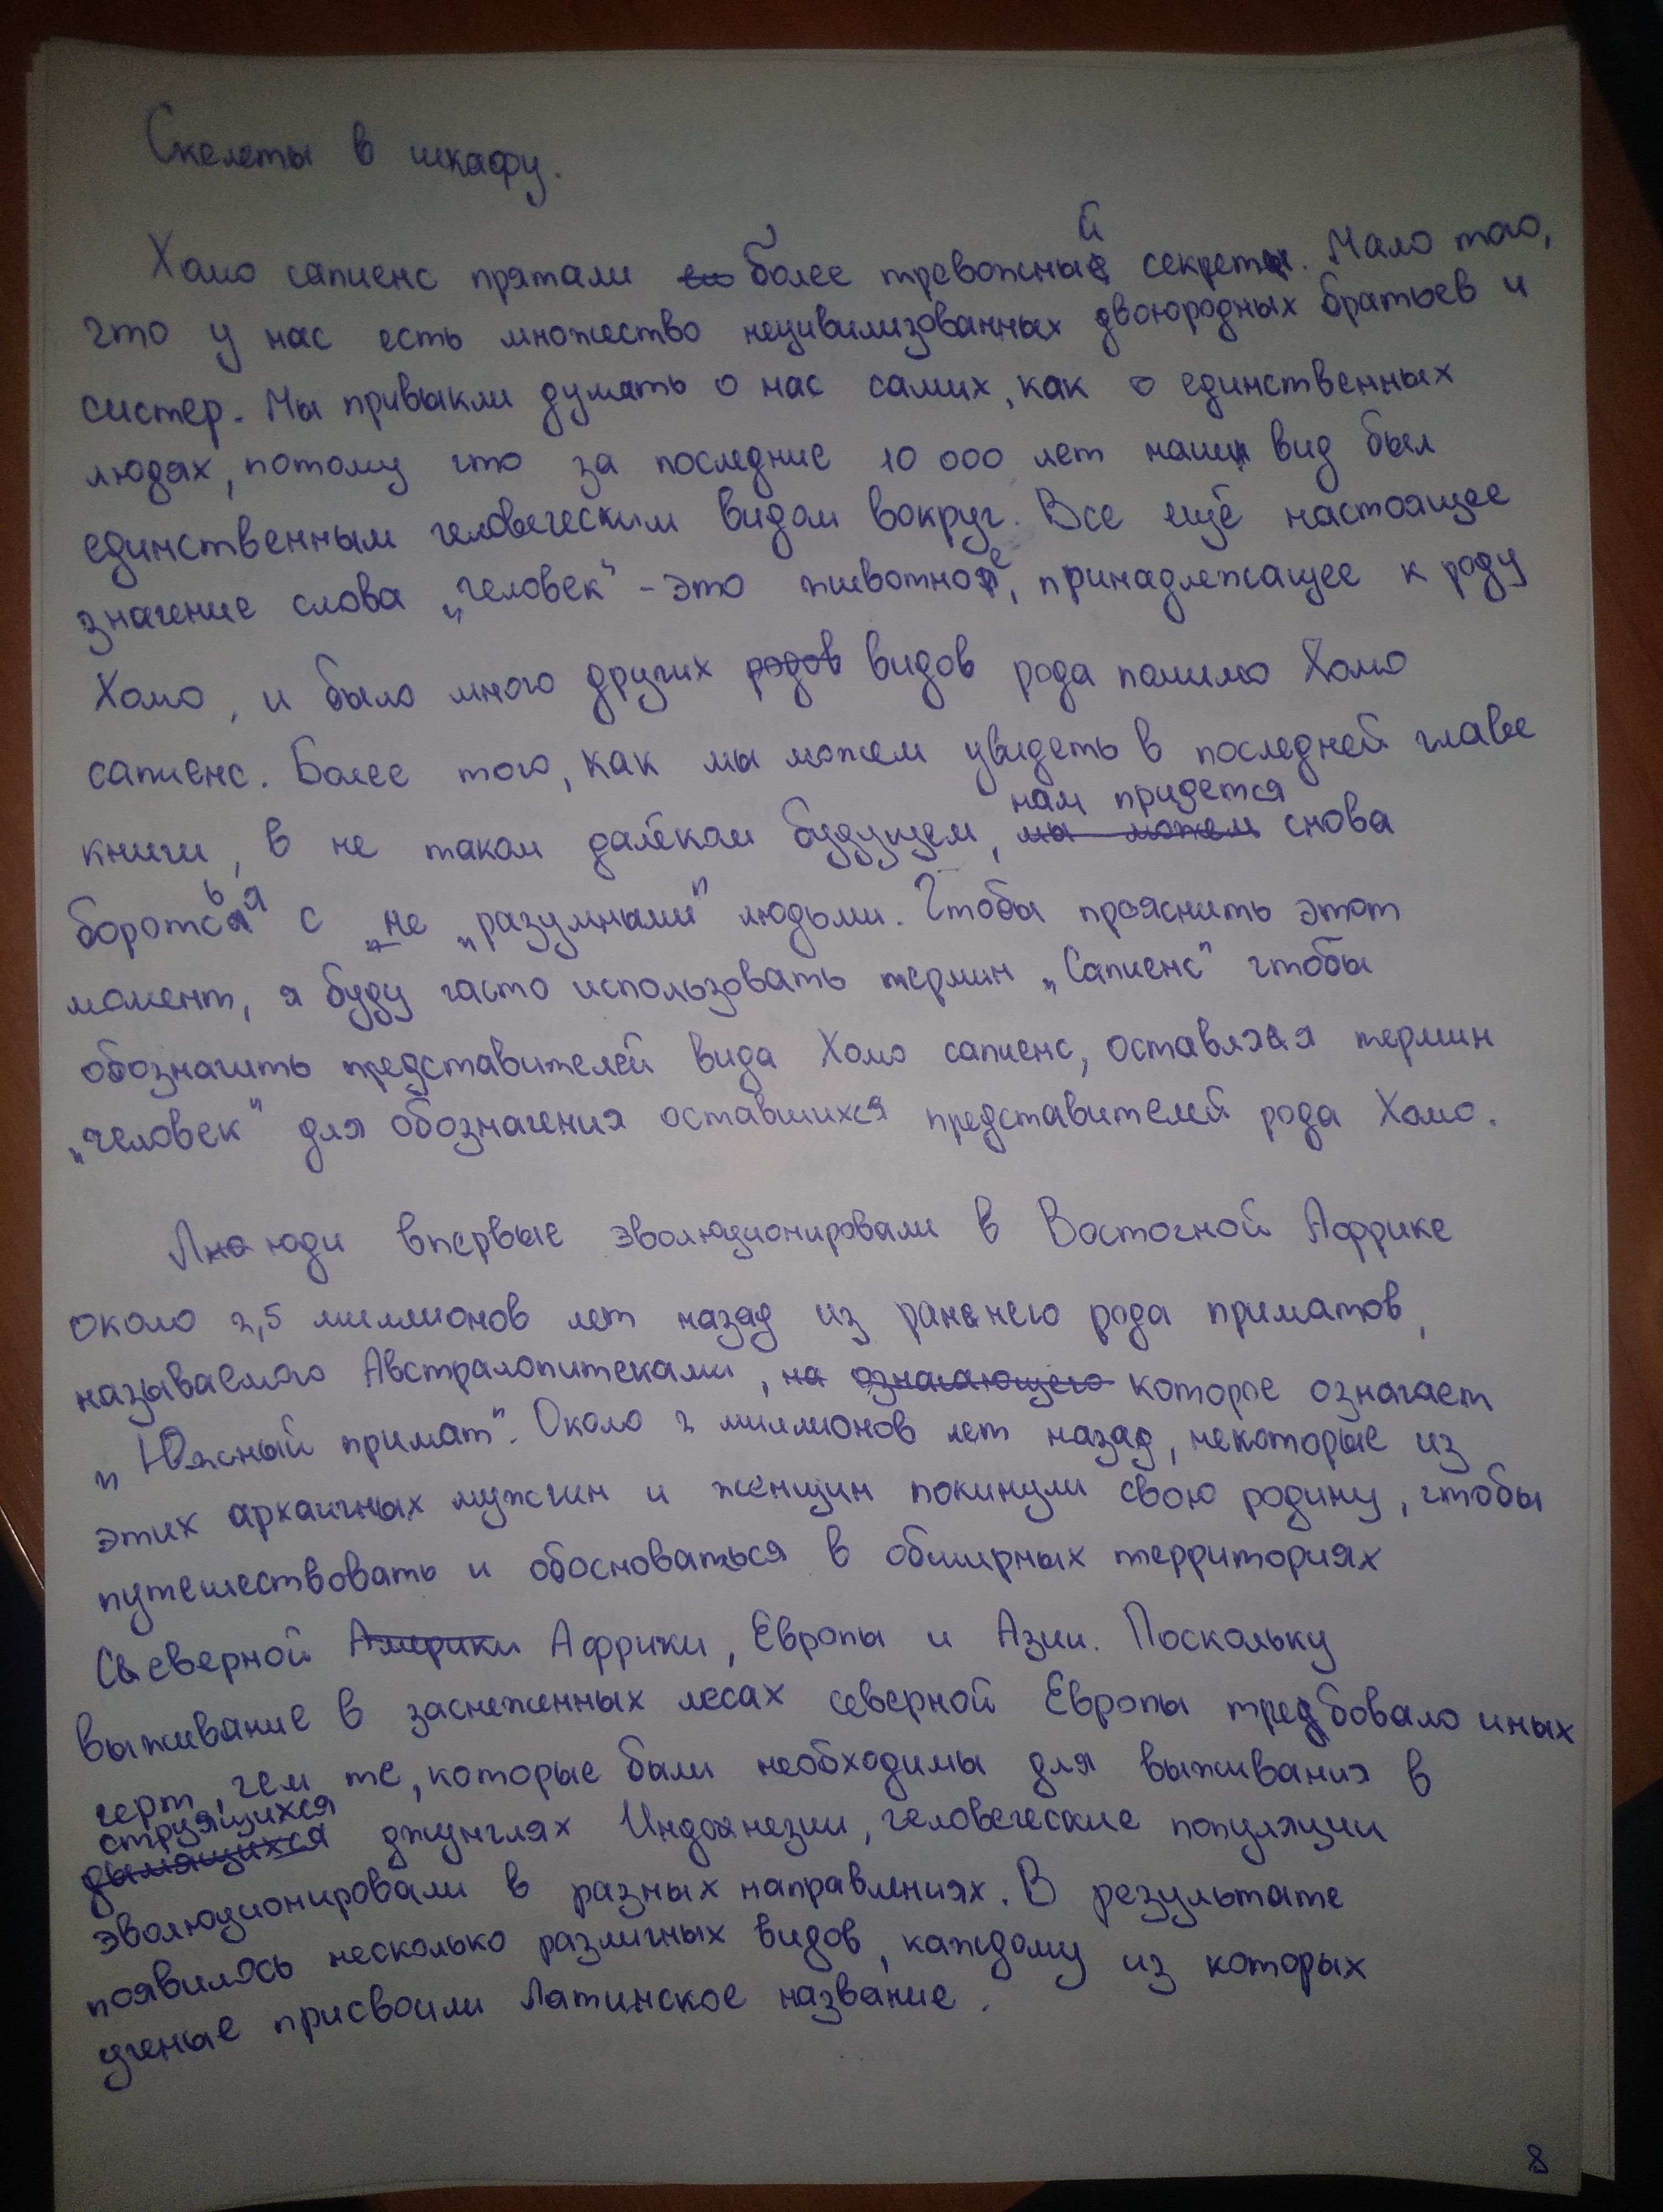 Скелеты в шкафу.
Хомо сапиенс прятали более тревожный секрет. Мало того,
что у нас есть множество нецивилизованных двоюродных братьев и
систер. Мы привыкли думать о нас самих, как о единственных
людях, потому что за последние 10 000 лет наш вид был
единственным человеческим видом вокруг. Все ещё настоящее
значение слова „человек" - это животное, принадлежащее к роду
Хомо, и было много других родов видов рода помимо Хомо
сапиенс. Более того, как мы можем увидеть в последней главе
книги, в не таком далёком будущем, мы можем нам придется снова
бороться с не „разумными" людьми. Чтобы прояснить этот
момент, я буду часто использовать термин „Сапиенс" чтобы
обозначить представителей вида Хомо сапиенс, оставляя термин
„человек" для обозначения оставшихся представителей рода Хомо.
Люди впервые эволюционировали в Восточной Африке
около 2,5 миллионов лет назад из раннего рода приматов,
называемого Австралопитеками, на означающего которое означает
„Южный примат". Около 2 миллионов лет назад, некоторые из
этих архаичных мужчин и женщин покинули свою родину, чтобы
путешествовать и обосноваться в обширных территориях
Северной Америки Африки, Европы и Азии. Поскольку
выживание в заснеженных лесах северной Европы требовало иных
черт, чем те, которые были необходимы для выживания в
дымящихся струящихся джунглях Индонезии, человеческие популяции
эволюционировали в разных направлениях. В результате
появилось несколько различных видов, каждому из которых
ученые присвоили Латинское название.
8